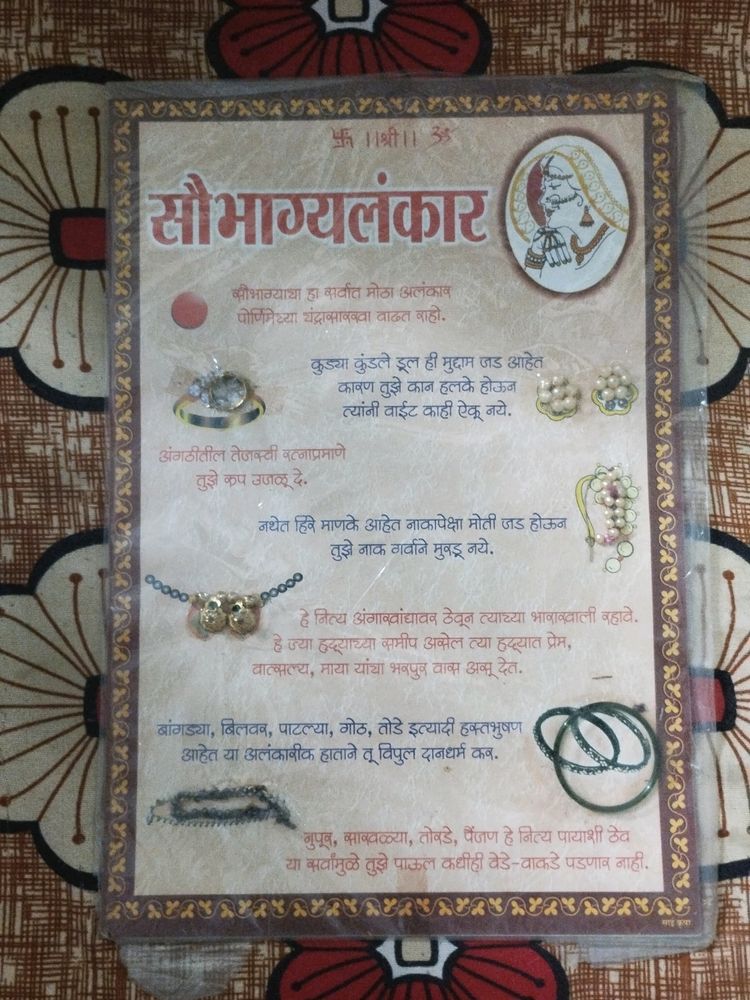 卐 ।।श्री।। ॐ
सौभाग्यलंकार
सौभाग्याचा हा सर्वात मोठा अलंकार
पोर्णिमेच्या चंद्रासारखा वाढत राहो.
कुड्या कुंडले डूल ही मुद्दाम जड आहेत
कारण तुझे कान हलके होऊन
त्यांनी वाईट काही ऐकू नये.
अंगठीतील तेजस्वी रत्नाप्रमाणे
तुझे रुप उजळू दे.
नथेत हिरे माणके आहेत नाकापेक्षा मोती जड होऊन
तुझे नाक गर्वाने मुरडू नये.
हे नित्य अंगाखांद्यावर ठेवून त्याच्या भाराखाली रहावे.
हे ज्या हृदयाच्या समीप असेल त्या हृदयात प्रेम,
वात्सल्य, माया यांचा भरपुर वास असू देत.
बांगड्या, बिलवर, पाटल्या, गोठ, तोडे इत्यादी हस्तभुषण
आहेत या अलंकारीक हाताने तू विपुल दानधर्म कर.
नुपूर, साखळ्या, तोरडे, पैंजण हे नित्य पायाशी ठेव
या सर्वांमुळे तुझे पाऊल कधीही वेडे-वाकडे पडणार नाही.
साई कृपा